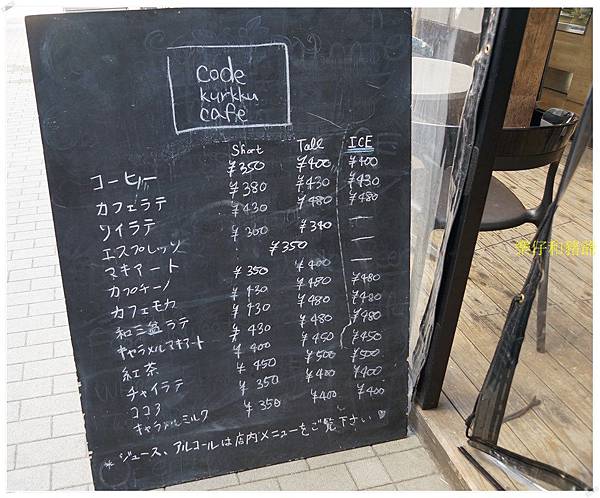 code
kurkku
cafe
Short Tall ICE
コーヒー ¥350 ¥400 ¥400
カフェラテ ¥380 ¥430 ¥430
ソイラテ ¥430 ¥480 ¥480
エスプレッソ ¥300 ¥340 —
マキアート ¥350 —
カプチーノ ¥350 ¥400 —
カフェモカ ¥430 ¥480 ¥480
和三盆ラテ ¥430 ¥480 ¥480
キャラメルマキアート ¥430 ¥480 ¥480
紅茶 ¥400 ¥450 ¥450
チャイラテ ¥450 ¥500 ¥500
ココア ¥350 ¥400 ¥400
キャラメルミルク ¥350 ¥400 ¥400
* ジュース、アルコールは店内メニューをご覧下さい